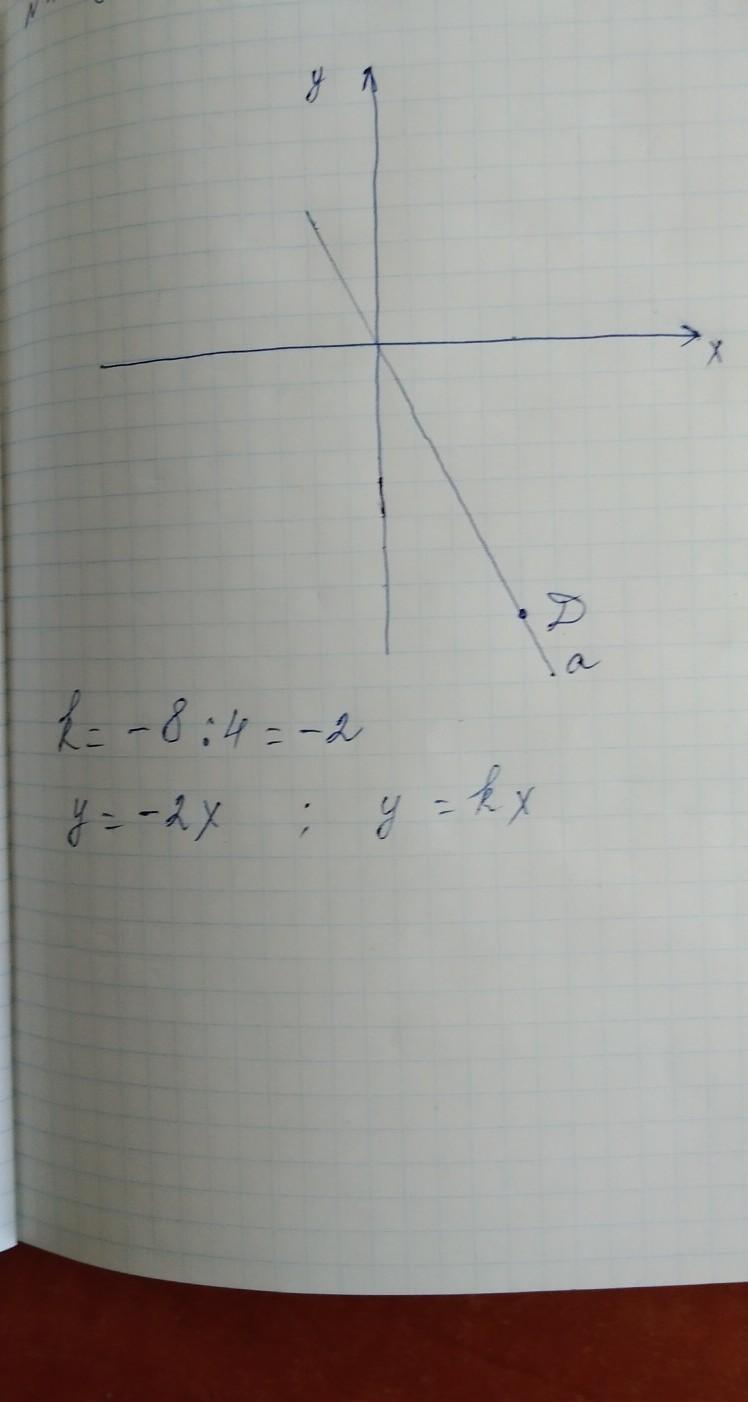 y
x
D
a
k = -8 : 4 = -2
y = -2x ; y = kx